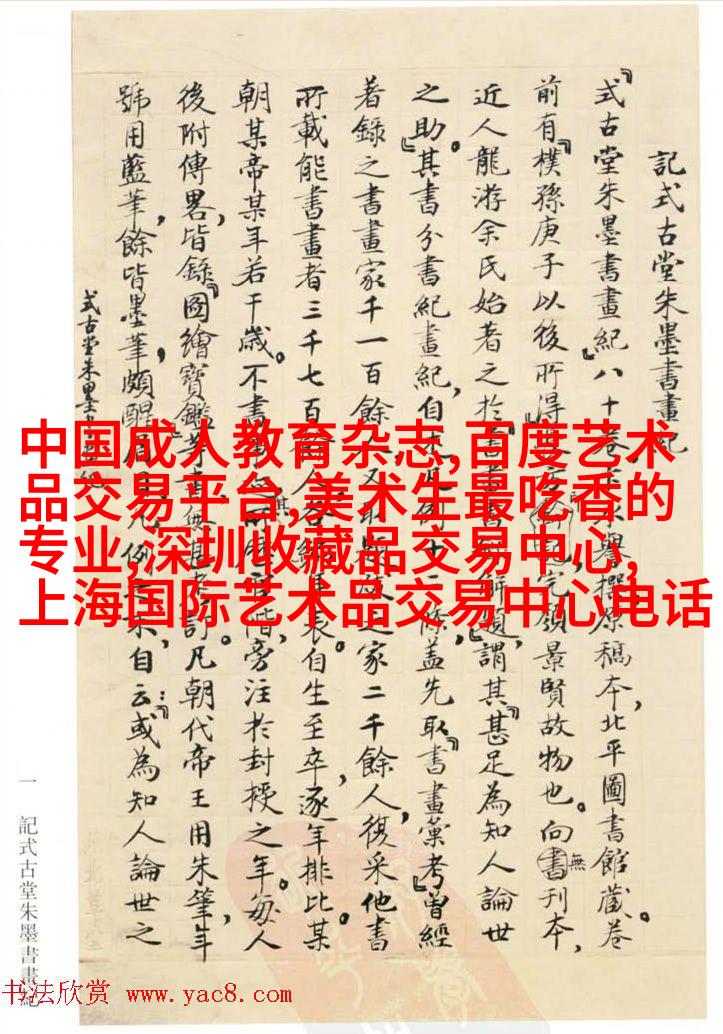 記式古堂朱墨書畫紀
『式古堂朱墨書畫紀』八十卷卞永譽撰原稿本，北平圖書館藏。卷
前有『樸孫庚子以後所得
景賢故物也。向無刊本，
近人龍游余氏始著之於『書畫書錄解題』，謂其『甚足為知人論世
之助』。其書分書紀畫紀，自
條，蓋先取『書畫彙考』曾經
著錄之書畫家千一百餘人，
之家二千餘人，復采他書
所載能書畫者三千七百餘人，
表。自生至卒，逐年排比某
朝某帝某年若干歲。不書
階，旁注於封授之年。每人
後附傳畧，皆錄『圖繪寶鑑』等書，無甚考訂。凡朝代帝王用朱筆，年
號用藍筆，餘皆墨筆，頗醒眉目。凡例
自云：或為知人論世之
式古堂朱墨書畫紀
中国成人教育杂志,百度艺术
品交易平台,美术生最吃香的
专业,深圳收藏品交易中心,
上海国际艺术品交易中心电话
一 記式古堂朱墨書畫紀
书法欣赏 www.yac8.com